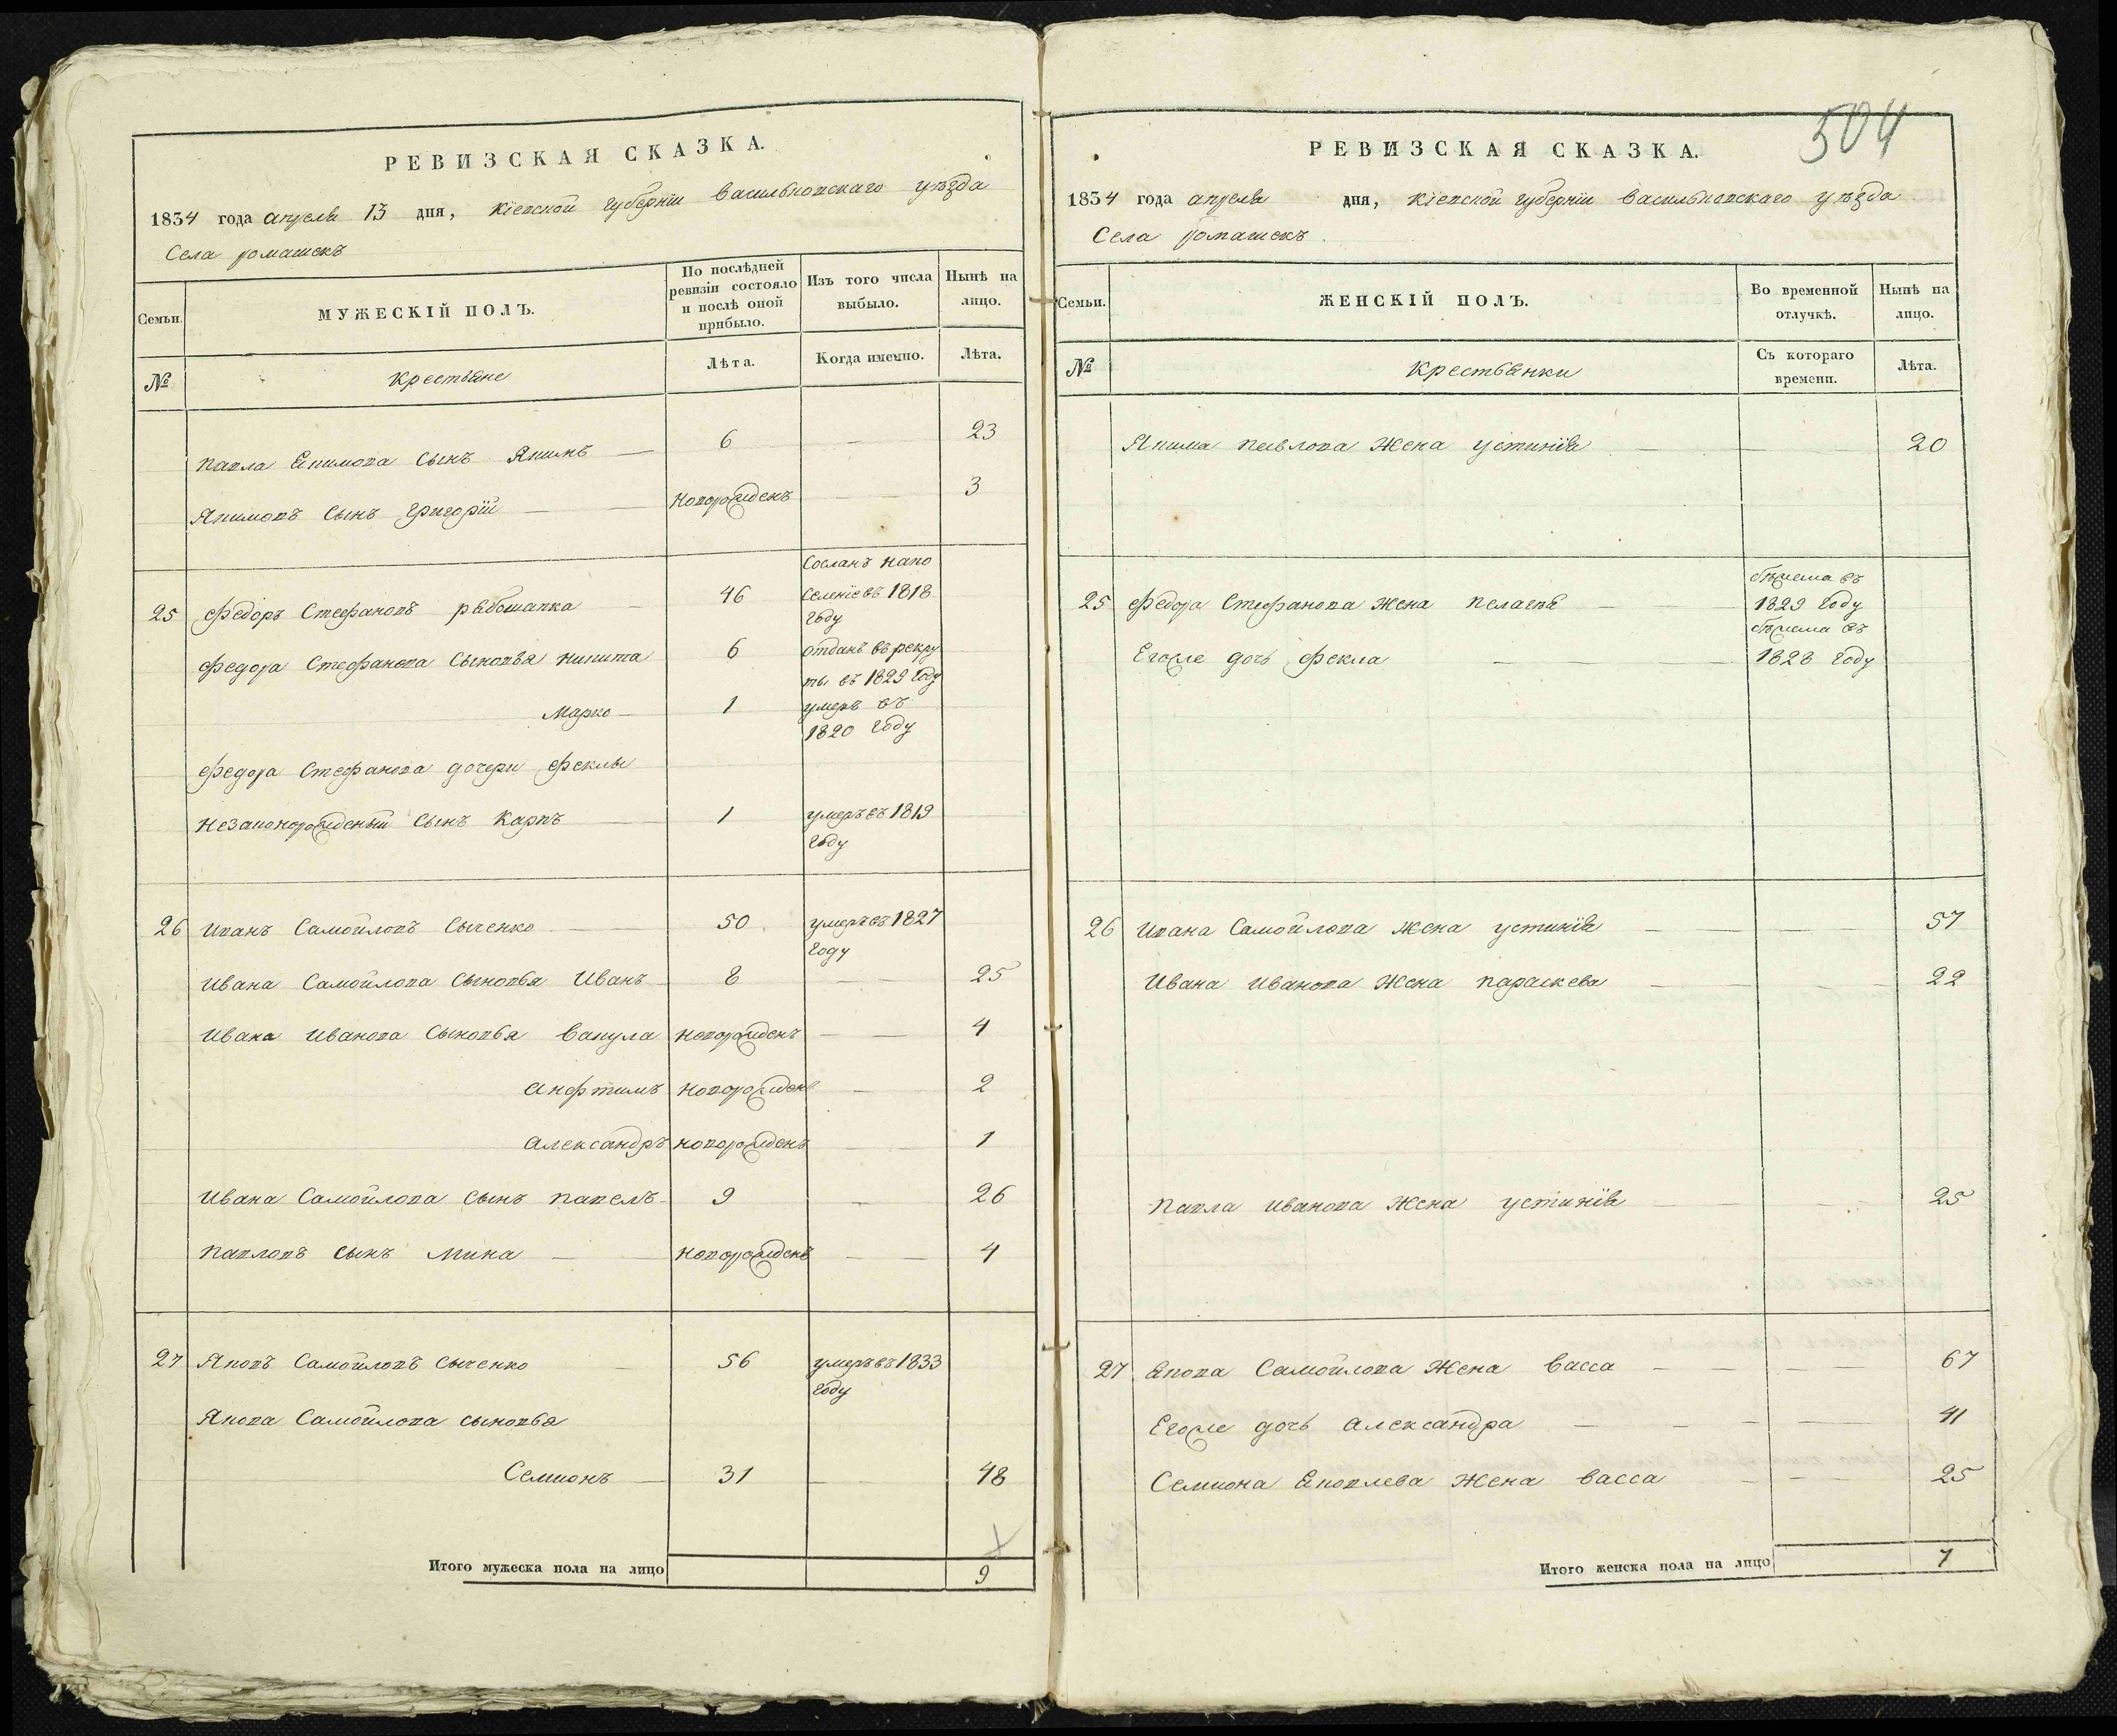 РЕВИЗСКАЯ СКАЗКА.
1834 года апреля 13 дня, Кіевской губерніи Васильковскаго уѣзда
Села ромашекъ
Семьи.
МУЖЕСКІЙ ПОЛЪ.
По послѣдней ревизіи состояло и послѣ оной прибыло.
Изъ того числа выбыло.
Нынѣ на лицо.
№
Крестьяне
Лѣта.
Когда именно.
Лѣта.
Павла Якимова сынъ Якимъ 6 — 23
Якимовъ сынъ григорій — новорожденъ — 3
25 Федоръ Стефановъ рябошапка — 46 Сосланъ напо
селніевъ 1818
году
Федора Стефанова сыновья никита 6 отданъ въ рекру
ты въ 1829 году
Марко — 1 умеръ въ
1820 году
Федора Стефанова дочери феклы
незаконорожденый сынъ Карпъ — 1 умеръ въ 1819
году
26 Иванъ Самойловъ Сыченко — 50 умеръ въ 1827
году
Ивана Самойлова сыновья Иванъ 8 — 25
Ивана Иванова сыновья вакула новорожденъ — 4
анфтимъ новорожденъ — 2
александръ новорожденъ — 1
Ивана Самойлова сынъ павелъ 9 — 26
павловъ сынъ Мина — новорожденъ — 4
27 Яковъ Самойловъ Сыченко — 56 умеръ въ 1833
году
Якова Самойлова сыновья
Семионъ — 31 — 48
Итого мужеска пола на лицо 9
504
РЕВИЗСКАЯ СКАЗКА.
1834 года апреля дня, Кіевской губерніи Васильковскаго уѣзда
Села ромашекъ
Семьи.
ЖЕНСКІЙ ПОЛЪ.
Во временной отлучкѣ.
Нынѣ на лицо.
№
Крестьянки
Съ котораго времени.
Лѣта.
Якима павлова жена устинія — 20
25 Федора Стефанова жена пелагея — въ
1829 году
Егожe дочь фекла — въ
1828 году
26 Ивана Самойлова жена устинія — 57
Ивана Иванова жена параскева — 22
павла Иванова жена устинія — 25
27 Якова Самойлова жена васса — 67
Егоже дочь александра — 41
Семиона Яковлева жена васса — 25
Итого женска пола на лицо 7